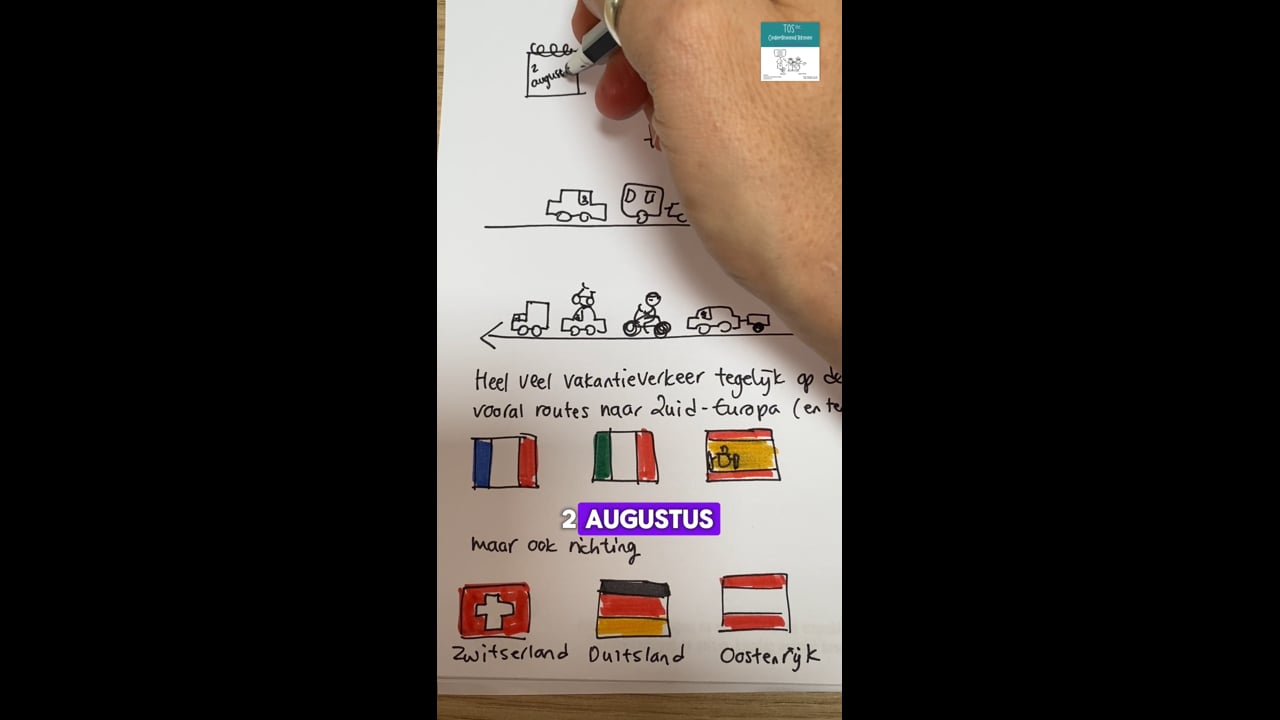 TOS
Ondersteunend tekenen
2
augustus
Heel veel vakantieverkeer tegelijk op de
vooral routes naar Zuid-Europa (en te
2 AUGUSTUS
maar ook richting
Zwitserland Duitsland Oostenrijk